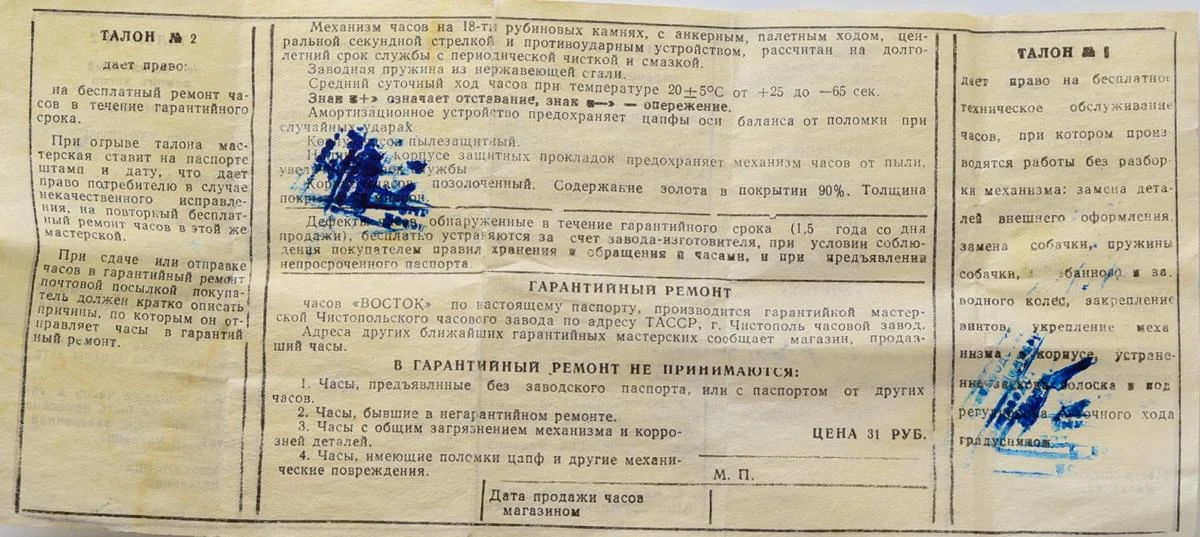 ТАЛОН № 2
дает право:
на бесплатный ремонт ча-
сов в течение гарантийного
срока.
При отрыве талона мас-
терская ставит на паспорте
штамп и дату, что дает
право потребителю в случае
некачественного исправле-
ния, на повторкый бесплат-
ный ремонт часов в этой же
мастерской.
При сдаче или отправке
часов в гарантийный ремонт
почтовой посылкой покупа-
тель должен кратко описать
причины, по которым он от-
правляет часы в гарантий
ный ремонт.
Механизм часов на 18-ти рубиновых камнях, с анкерным, палетным ходом, цен-
ральной секундной стрелкой и противоударным устройством, рассчитан на долго-
летний срок службы с периодической чисткой и смазкой.
Заводная пружина из нержавеющей стали.
Средний суточный ход часов при температуре 20±5°С от +25 до —65 сек.
Знак «+» означает отставание, знак «—» — опережение.
Амортизационное устройство предохраняет цапфы оси баланса от поломки при
случайных ударах
часов пылезащитный.
корпусе защитных прокладок предохраняет механизм часов от пыли,
службы
часов позолоченный. Содержание золота в покрытии 90%. Толщина
микрон.
Дефекты часов, обнаруженные в течение гарантийного срока (1,5 года со дня
продажи), бесплатно устраняются за счет завода-изготовителя, при условии соблю-
дения покупателем правил хранения и обращения с часами, и при предъявлении
непросроченного паспорта.
ГАРАНТИЙНЫЙ РЕМОНТ
часов «ВОСТОК» по настоящему паспорту, производится гарантийкой мастер-
ской Чистопольского часового завода по адресу ТАССР, г. Чистополь часовой завод.
Адреса других ближайших гарантийных мастерских сообщает магазин, продав-
ший часы.
В ГАРАНТИЙНЫЙ РЕМОНТ НЕ ПРИНИМАЮТСЯ:
1. Часы, предъявлнные без заводского паспорта, или с паспортом от других
часов.
2. Часы, бывшие в негарантийном ремонте.
3. Часы с общим загрязнением механизма и корро-
зней деталей.
4. Часы, имеющие поломки цапф и другие механи-
ческие повреждения.
ЦЕНА 31 РУБ.
М. П.
Дата продажи часов
магазином
ТАЛОН № 1
дает право на бесплатное
техническое обслуживание
часов, при котором произ
водятся работы без разбор-
ки механизма: замена дета-
лей внешнего оформления.
замена собачки, пружины
собачки, за.
водного колес, закрепление
винтов, укрепление меха
низма корпусе, устране-
ние волоска и под
точного хода
градусником.